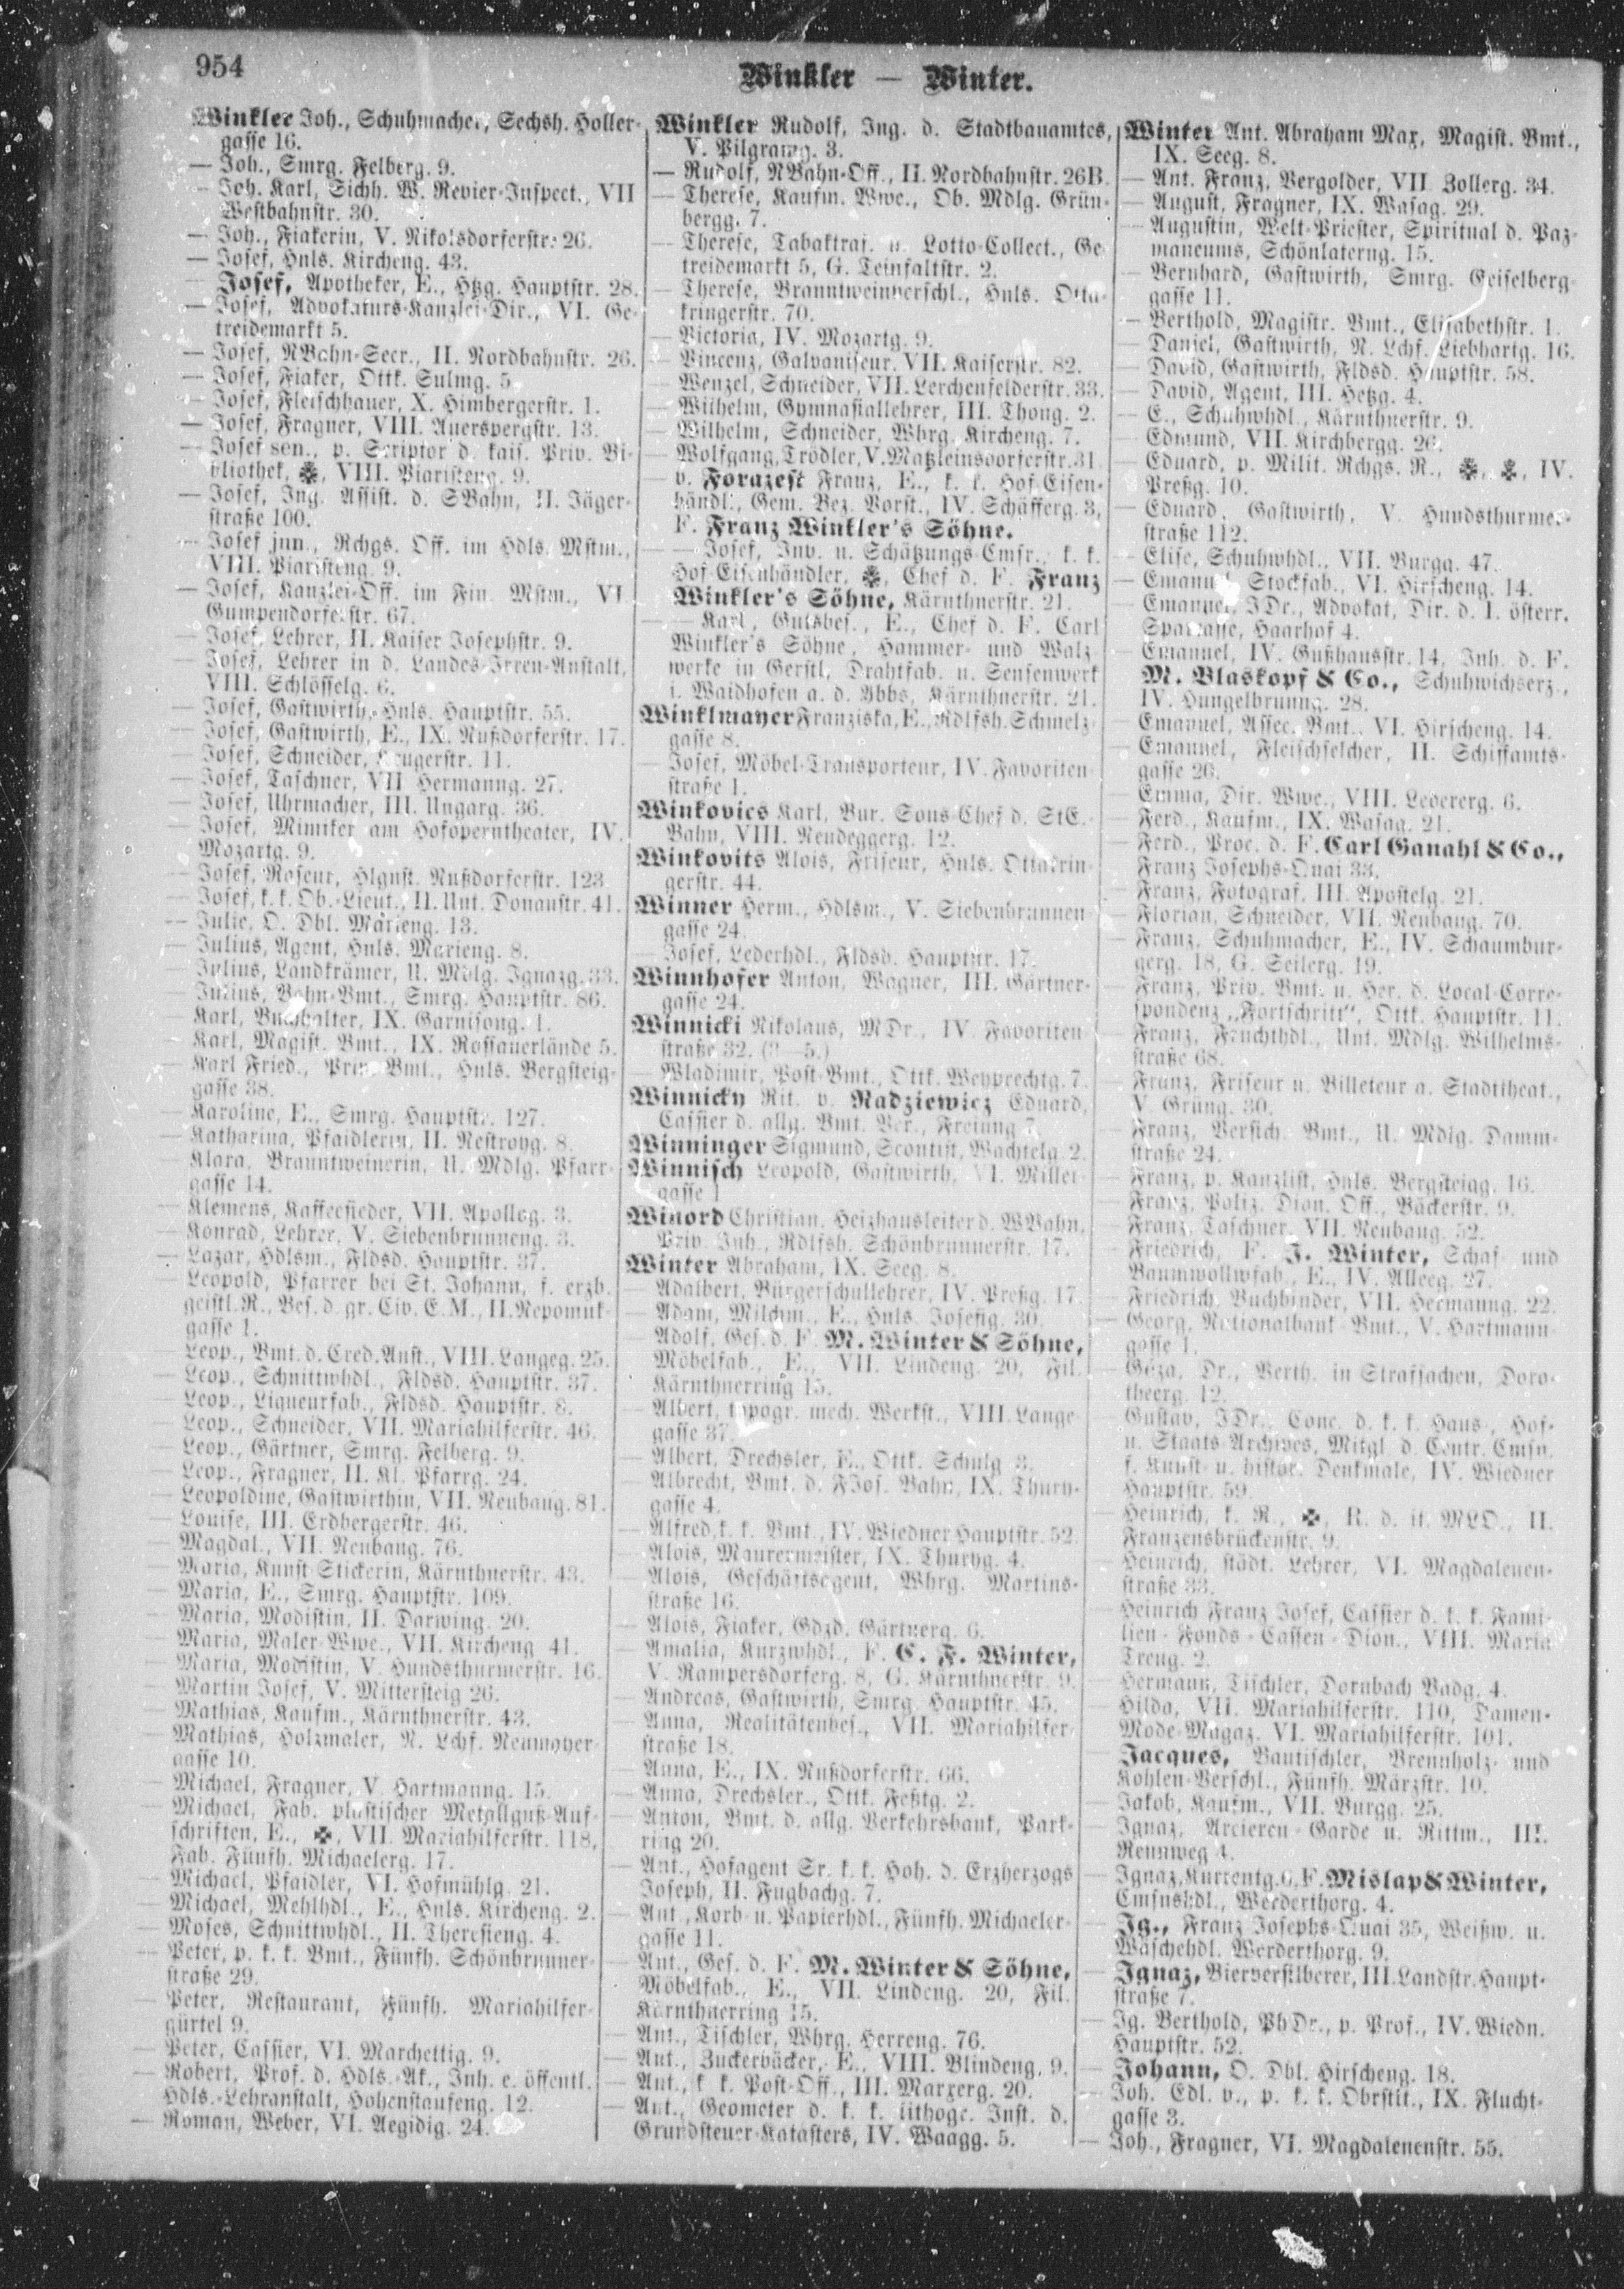 954
Winkler — Winter.
Winkler Joh., Schuhmacher, Sechsh. Holler-
gasse 16.
— Joh., Smrg. Felberg. 9.
— Joh. Karl, Sichh. W. Revier-Inspect., VII
Westbahnstr. 30.
— Joh., Fiakerin, V. Nikolsdorferstr. 26.
— Josef, Hnls. Kircheng. 43.
— Josef, Apotheker, E., Htzg. Hauptstr. 28.
— Josef, Advokaturs-Kanzlei-Dir., VI. Ge-
treidemarkt 5.
— Josef, NBahn-Secr., II. Nordbahnstr. 26.
— Josef, Fiaker, Ottk. Sulmg. 5.
— Josef, Fleischhauer, X. Himbergerstr. 1.
— Josef, Fragner, VIII. Auerspergstr. 13.
— Josef sen., p. Scriptor d. kais. Priv. Bi-
bliothek, ✠, VIII. Piaristeng. 9.
— Josef, Ing. Assist. d. SBahn, II. Jäger-
straße 100.
— Josef jun., Rchgs. Off. im Hdls. Mstm.,
VIII. Piaristeng. 9.
— Josef, Kanzlei-Off. im Fin. Mstm., VI
Gumpendorferstr. 67.
— Josef, Lehrer, II. Kaiser Josephstr. 9.
— Josef, Lehrer in d. Landes-Irren-Anstalt,
VIII. Schlösselg. 6.
— Josef, Gastwirth, Hnls. Hauptstr. 55.
— Josef, Gastwirth, E., IX. Nußdorferstr. 17.
— Josef, Schneider, 11.
— Josef, Taschner, VII Hermanng. 27.
— Josef, Uhrmacher, III. Ungarg. 36.
— Josef, Mimiker am Hofoperntheater, IV.
Mozartg. 9.
— Josef, Raseur, Hlgnst. Nußdorferstr. 123
— Josef, k. k. Ob.-Lieut., II. Unt. Donaustr. 41.
— Julie, O. Dbl. Marieng. 13.
— Julius, Agent, Hnls. Marieng. 8.
— Julius, Landkrämer, U. Mdlg. Ignazg. 33.
— Julius, Bahn-Bmt., Smrg. Hauptstr. 86.
— Karl, Buchhalter, IX. Garnisong. 1.
— Karl, Magist. Bmt., IX. Rossauerlände 5.
— Karl Fried., Priv. Bmt., Hnls. Bergsteig-
gasse 38.
— Karoline, E., Smrg. Hauptstr. 127.
— Katharina, Pfaidlerin, II. Nestroyg. 8.
— Klara, Branntweinerin, U. Mdlg. Pfarr-
gasse 14.
— Klemens, Kaffeesieder, VII. Apollog. 3.
— Konrad, Lehrer, V. Siebenbrunneng. 3.
— Lazar, Hdlsm., Fldsd. Hauptstr. 37.
— Leopold, Pfarrer bei St. Johann, f. erzb.
geistl. R., Bes. d. gr. Civ. E.M., II. Nepomuk-
gasse 1.
— Leop., Bmt. d. Cred. Anst., VIII. Langeg. 25.
— Leop., Schnittwhdl., Fldsd. Hauptstr. 37.
— Leop., Liqueurfab., Fldsd. Hauptstr. 8.
— Leop., Schneider, VII. Mariahilferstr. 46.
— Leop., Gärtner, Smrg. Felberg. 9.
— Leop., Fragner, II. Kl. Pfarrg. 24.
— Leopoldine, Gastwirthin, VII. Neubaug. 81.
— Louise, III. Erdbergerstr. 46.
— Magdal., VII. Neubaug. 76.
— Maria, Kunst-Stickerin, Kärnthnerstr. 43.
— Maria, E., Smrg. Hauptstr. 109.
— Maria, Modistin, II. Darwing. 20.
— Maria, Maler-Wwe., VII. Kircheng. 41.
— Maria, Modistin, V. Hundsthurmerstr. 16.
— Martin Josef, V. Mittersteig 26.
— Mathias, Kaufm., Kärnthnerstr. 43.
— Mathias, Holzmaler, N. Lchf. Neumayer-
gasse 10.
— Michael, Fragner, V. Hartmanng. 15.
— Michael, Fab. plastischer Metallguß-Auf-
schriften, E., ✠, VII. Mariahilferstr. 118,
Fab. Fünfh. Michaelerg. 17.
— Michael, Pfaidler, VI. Hofmühlg. 21.
— Michael, Mehlhdl., E., Hnls. Kircheng. 2.
— Moses, Schnittwhdl., II. Theresieng. 4.
— Peter, p. k. k. Bmt., Fünfh. Schönbrunner-
straße 29.
— Peter, Restaurant, Fünfh. Mariahilfer-
gürtel 9.
— Peter, Cassier, VI. Marchettig. 9.
— Robert, Prof. d. Hdls.-Ak., Inh. e. öffentl.
Hdls.-Lehranstalt, Hohenstaufeng. 12.
— Roman, Weber, VI. Aegidig. 24.
Winkler Rudolf, Ing. d. Stadtbauamtes,
V. Pilgramg. 3.
— Rudolf, NBahn-Off., II. Nordbahnstr. 26B.
— Therese, Kaufm. Wwe., Ob. Mdlg. Grün-
bergg. 7.
— Therese, Tabaktraf. u. Lotto-Collect., Ge-
treidemarkt 5, G. Teinfaltstr. 2.
— Therese, Branntweinverschl., Hnls. Otta-
kringerstr. 70.
— Victoria, IV. Mozartg. 9.
— Vincenz, Galvaniseur, VII. Kaiserstr. 82.
— Wenzel, Schneider, VII. Lerchenfelderstr. 33.
— Wilhelm, Gymnasiallehrer, III. Thong. 2.
— Wilhelm, Schneider, Whrg. Kircheng. 7.
— Wolfgang, Trödler, V. Matzleinsdorferstr. 31
— v. Forazest Franz, E., k. k. Hof-Eisen-
händl., Gem. Bez. Vorst., IV. Schäfferg. 3,
F. Franz Winkler's Söhne.
— — Josef, Inv. u. Schätzungs-Cmsr., k. k.
Hof-Eisenhändler, ✠, Chef d. F. Franz
Winkler's Söhne, Kärnthnerstr. 21.
— — Karl, Gutsbes., E., Chef d. F. Carl
Winkler's Söhne, Hammer- und Walz-
werke in Gerstl, Drahtfab. u. Sensenwerk
i. Waidhofen a. d. Ybbs, Kärnthnerstr. 21.
Winklmayer Franziska, E., Rdlfsh. Schmelz-
gasse 8.
— Josef, Möbel-Transporteur, IV. Favoriten-
straße 1.
Winkovics Karl, Bur. Sous-Chef d. StE.-
Bahn, VIII. Neudeggerg. 12.
Winkovits Alois, Friseur, Hnls. Ottakrin-
gerstr. 44.
Winner Herm., Hdlsm., V. Siebenbrunnen-
gasse 24.
— Josef, Lederhdl., Fldsd. Hauptstr. 17.
Winnhofer Anton, Wagner, III. Gärtner-
gasse 24.
Winnicki Nikolaus, MDr., IV. Favoriten-
straße 32. (3—5.)
— Wladimir, Post-Bmt., Ottk. Weyprechtg. 7.
Winnicky Rit. v. Radziewicz Eduard,
Cassier d. allg. Bmt. Ver., Freiung 7.
Winninger Sigmund, Scontist, Wachtelg. 2.
Winnisch Leopold, Gastwirth, VI. Miller-
gasse 1
Winord Christian, Heizhausleiter d. WBahn,
Priv. Inh., Rdlfsh. Schönbrunnerstr. 17.
Winter Abraham, IX. Seeg. 8.
— Adalbert, Bürgerschullehrer, IV. Preßg. 17.
— Adam, Milchm., E., Hnls. Josefig. 30.
— Adolf, Ges. d. F. M. Winter & Söhne,
Möbelfab., E., VII. Lindeng. 20, Fil.
Kärnthnerring 15.
— Albert, typogr. mech. Werkst., VIII. Lange-
gasse 37.
— Albert, Drechsler, E., Ottk. Schulg. 3.
— Albrecht, Bmt. d. FJos. Bahn, IX. Thury-
gasse 4.
— Alfred, k. k. Bmt., IV. Wiedner Hauptstr. 52.
— Alois, Maurermeister, IX. Thuryg. 4.
— Alois, Geschäftsagent, Whrg. Martins-
straße 16.
— Alois, Fiaker, Gdzd. Gärtnerg. 6.
— Amalia, Kurzwhdl., F. C. F. Winter,
V. Rampersdorferg. 8, G. Kärnthnerstr. 9.
— Andreas, Gastwirth, Smrg. Hauptstr. 45.
— Anna, Realitätenbes., VII. Mariahilfer-
straße 18.
— Anna, E., IX. Nußdorferstr. 66.
— Anna, Drechsler., Ottk. Feßtg. 2.
— Anton, Bmt. d. allg. Verkehrsbank, Park-
ring 20.
— Ant., Hofagent Sr. k. k. Hoh. d. Erzherzogs
Joseph, II. Fugbachg. 7.
— Ant., Korb- u. Papierhdl., Fünfh. Michaeler-
gasse 11.
— Ant., Ges. d. F. M. Winter & Söhne,
Möbelfab., E., VII. Lindeng. 20, Fil.
Kärnthnerring 15.
— Ant., Tischler, Whrg. Herreng. 76.
— Ant., Zuckerbäcker, E., VIII. Blindeng. 9.
— Ant., k. k. Post-Off., III. Marxerg. 20.
— Ant., Geometer d. k. k. lithogr. Inst. d.
Grundsteuer-Katasters, IV. Waagg. 5.
Winter Ant. Abraham Max, Magist. Bmt.,
IX. Seeg. 8.
— Ant. Franz, Vergolder, VII. Zollerg. 34.
— August, Fragner, IX. Wasag. 29.
— Augustin, Welt-Priester, Spiritual d. Paz-
maneums, Schönlaterng. 15.
— Bernhard, Gastwirth, Smrg. Geiselberg-
gasse 11.
— Berthold, Magistr. Bmt., Elisabethstr. 1.
— Daniel, Gastwirth, N. Lchf. Liebhartg. 16.
— David, Gastwirth, Fldsd. Hauptstr. 58.
— David, Agent, III. Hetzg. 4.
— E., Schuhwhdl., Kärnthnerstr. 9.
— Edmund, VII. Kirchbergg. 26.
— Eduard, p. Milit. Rchgs. R., ✠, ✠, IV.
Preßg. 10.
— Eduard, Gastwirth, V. Hundsthurmer-
straße 112.
— Elise, Schuhwhdl., VII. Burgg. 47.
— Emanuel, Stockfab., VI. Hirscheng. 14.
— Emanuel, JDr., Advokat, Dir. d. I. österr.
Sparcasse, Haarhof 4.
— Emanuel, IV. Gußhausstr. 14, Inh. d. F.
M. Blaskopf & Co., Schuhwichserz.,
IV. Hungelbrunng. 28.
— Emanuel, Assec. Bmt., VI. Hirscheng. 14.
— Emanuel, Fleischselcher, II. Schiffamts-
gasse 26.
— Emma, Dir. Wwe., VIII. Ledererg. 6.
— Ferd., Kaufm., IX. Wasag. 21.
— Ferd., Proc. d. F. Carl Ganahl & Co.,
Franz Josephs-Quai 33.
— Franz, Fotograf, III. Apostelg. 21.
— Florian, Schneider, VII. Neubaug. 70.
— Franz, Schuhmacher, E., IV. Schaumbur-
gerg. 18, G. Seilerg. 19.
— Franz, Priv. Bmt. u. Her. d. Local-Corre-
spondenz „Fortschritt“, Ottk. Hauptstr. 11.
— Franz, Fruchthdl., Unt. Mdlg. Wilhelms-
straße 68.
— Franz, Friseur u. Billeteur a. Stadttheat.,
V. Grüng. 30.
— Franz, Versich. Bmt., U. Mdlg. Damm-
straße 24.
— Franz, p. Kanzlist, Hnls. Bergsteigg. 16.
— Franz, Poliz. Dion. Off., Bäckerstr. 9.
— Franz, Taschner, VII. Neubaug. 52.
— Friedrich, F. J. Winter, Schaf- und
Baumwollwfab., E., IV. Alleeg. 27.
— Friedrich, Buchbinder, VII. Hermanng. 22.
— Georg, Nationalbank-Bmt., V. Hartmann-
gasse 1.
— Géza, Dr., Verth. in Strafsachen, Doro-
theerg. 12.
— Gustav, JDr., Conc. d. k. k. Haus-, Hof-
u. Staats-Archives, Mitgl. d. Centr. Cmsn.
f. Kunst- u. histor. Denkmale, IV. Wiedner
Hauptstr. 59.
— Heinrich, k. R., ✠, R. d. it. MLO., II.
Franzensbrückenstr. 9.
— Heinrich, städt. Lehrer, VI. Magdalenen-
straße 33.
— Heinrich Franz Josef, Cassier d. k. k. Fami-
lien-Fonds-Cassen-Dion., VIII. Maria
Treug. 2.
— Hermann, Tischler, Dornbach Badg. 4.
— Hilda, VII. Mariahilferstr. 110, Damen-
Mode-Magaz. VI. Mariahilferstr. 101.
— Jacques, Bautischler, Brennholz- und
Kohlen-Verschl., Fünfh. Märzstr. 10.
— Jakob, Kaufm., VII. Burgg. 25.
— Ignaz, Arcieren-Garde u. Rittm., III.
Rennweg 4.
— Ignaz, Kurrentg. 6, F. Mislap & Winter,
Cmsnshdl., Werderthorg. 4.
— Ig., Franz Josephs-Quai 35, Weißw. u.
Wäschehdl. Werderthorg. 9.
— Ignaz, Bierversilberer, III. Landstr. Haupt-
straße 7.
— Ig. Berthold, PhDr., p. Prof., IV. Wiedn.
Hauptstr. 52.
— Johann, O. Dbl. Hirscheng. 18.
— Joh. Edl. v., p. k. k. Obrstlt., IX. Flucht-
gasse 3.
— Joh., Fragner, VI. Magdalenenstr. 55.